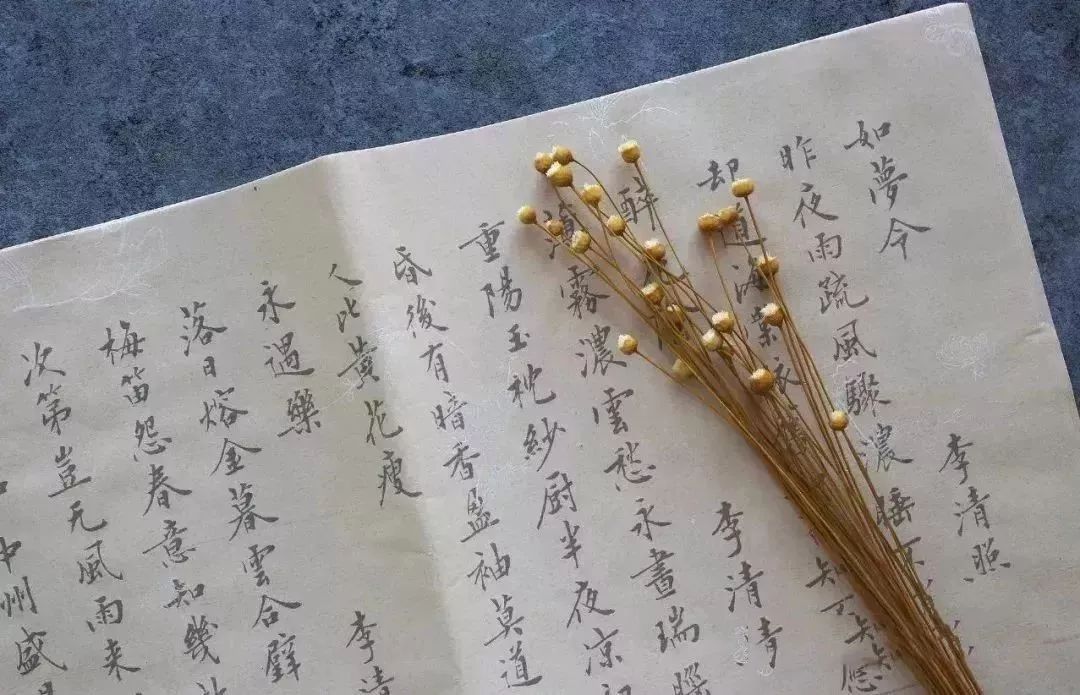 如夢令 李清照
昨夜雨疏風驟濃睡不
却道海棠依 知否知
醉 李清清
薄霧濃雲愁永晝瑞腦
重陽玉枕紗厨半夜凉初
昏後有暗香盈袖莫道
人比黄花瘦
永遇樂 李清
落日熔金暮雲合璧
梅笛怨春意知幾
次第豈无風雨来
中州盛